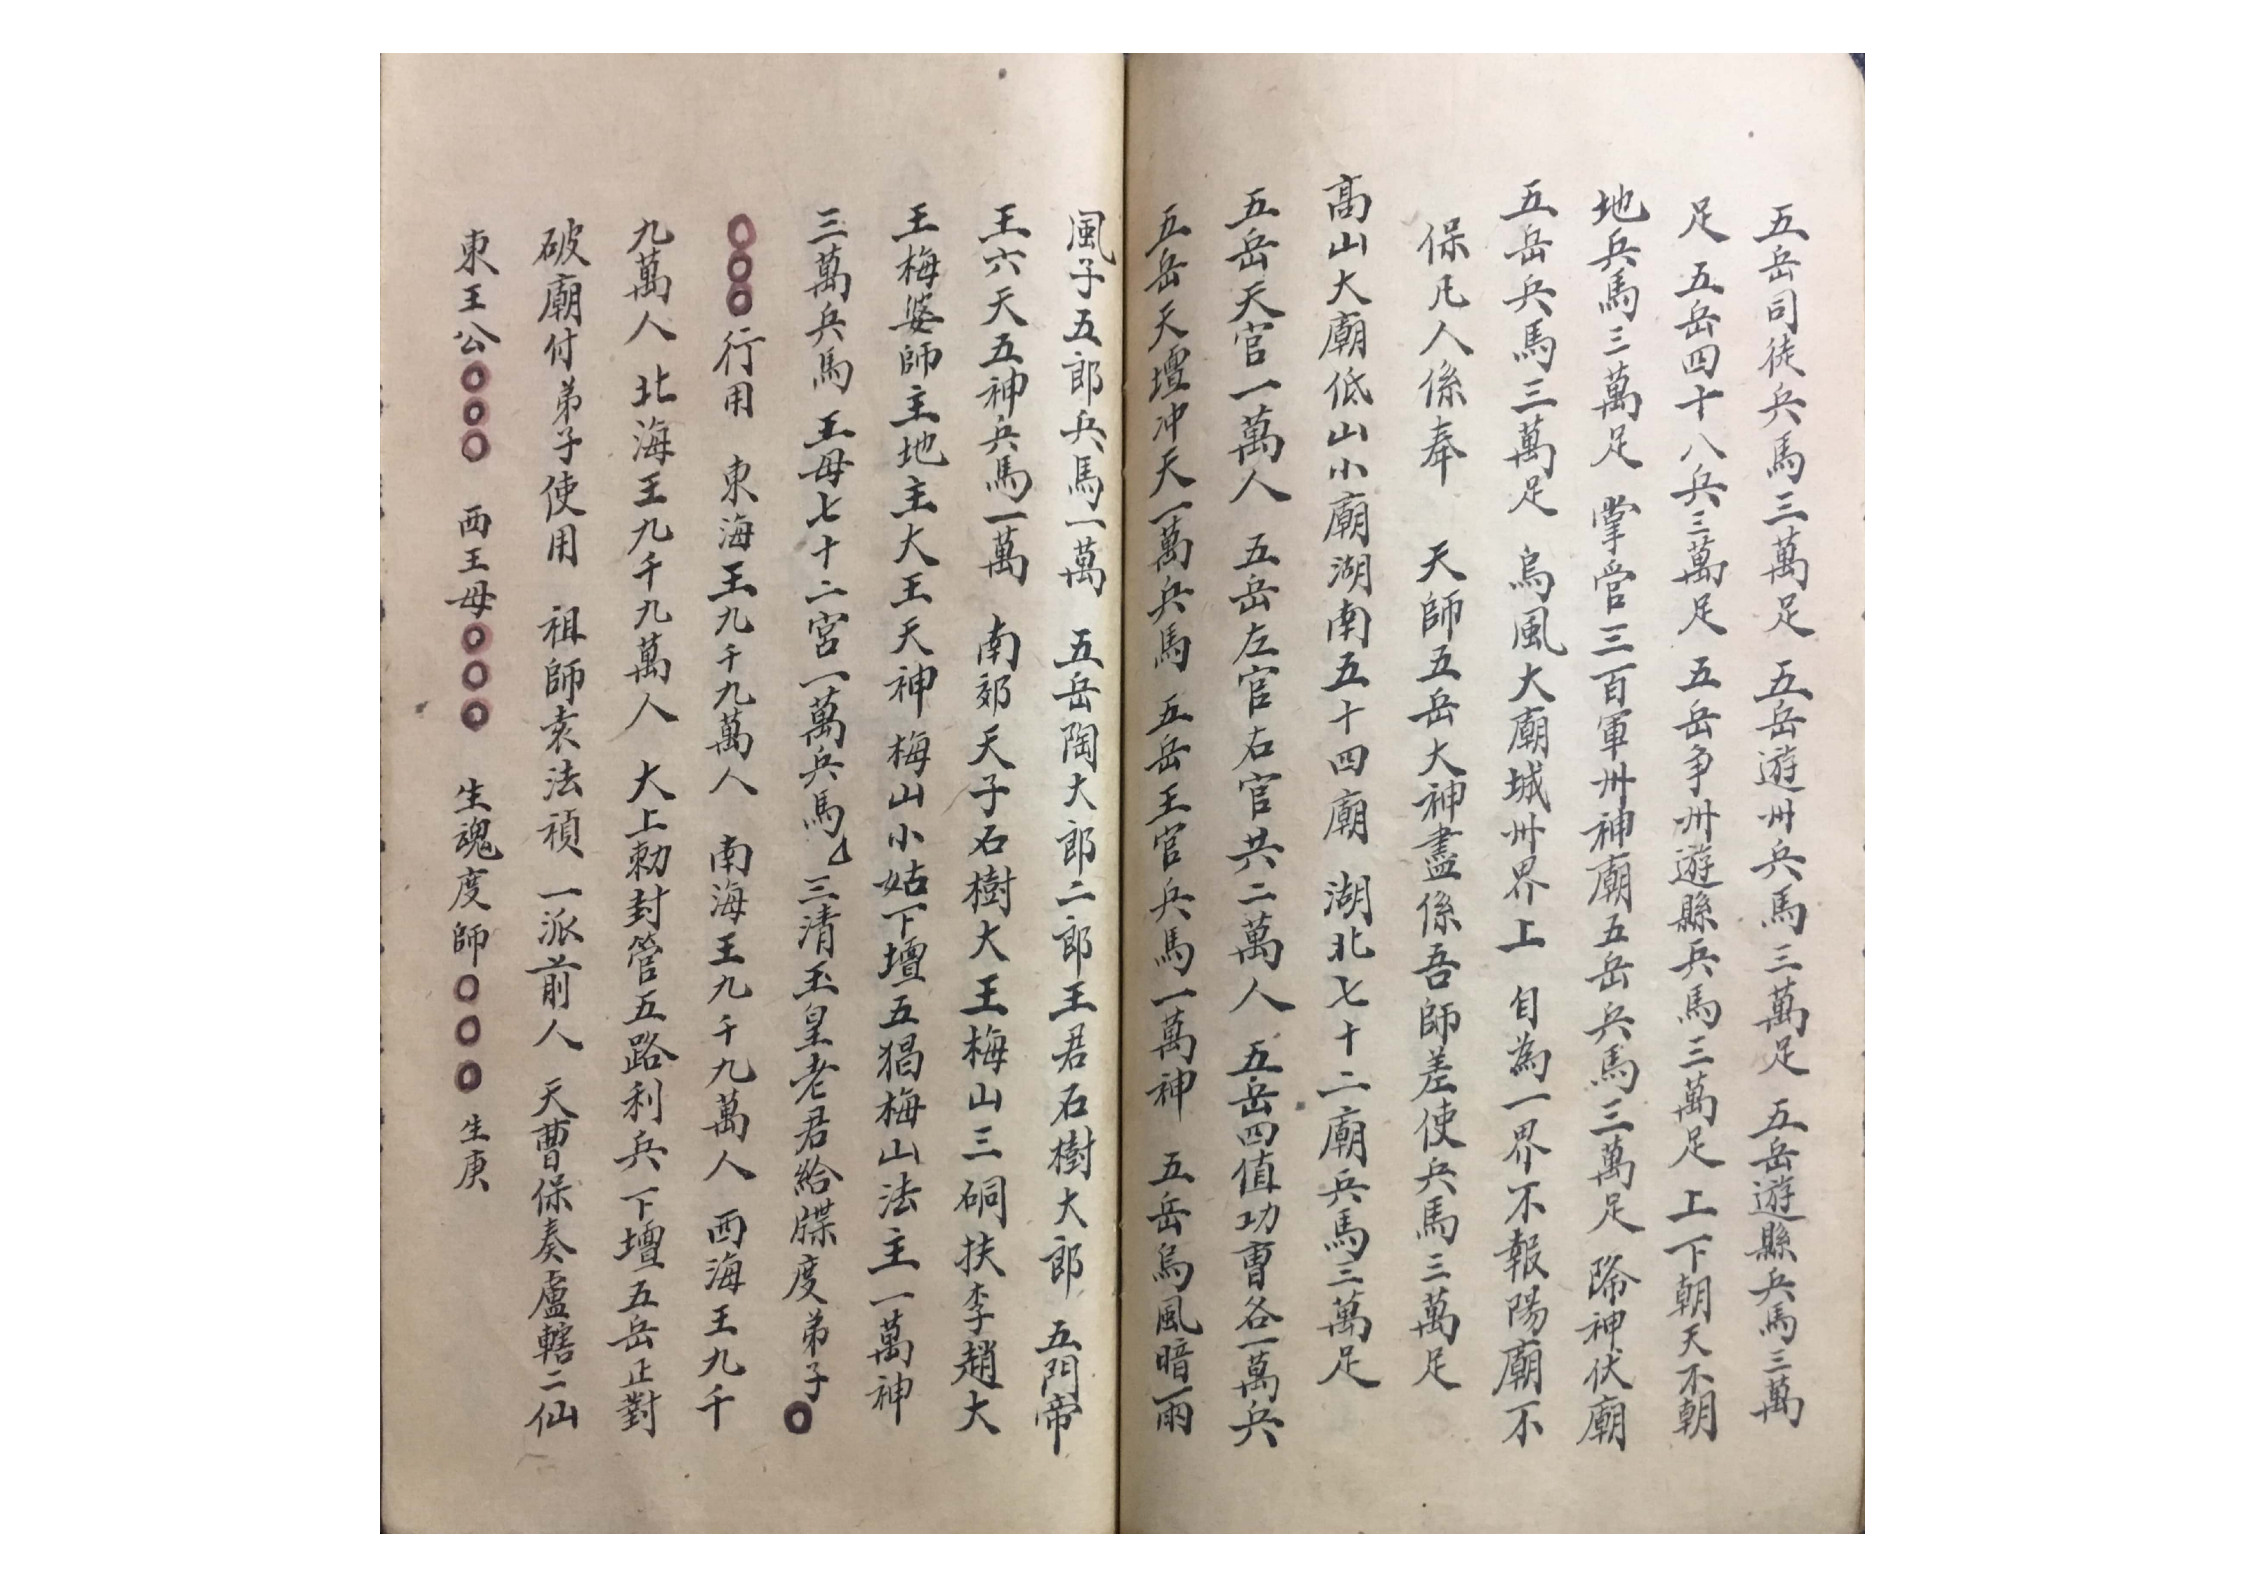 五岳司徒兵馬三萬足 五岳遊卅兵馬三萬足 五岳遊縣兵馬三萬
足 五岳四十八兵三萬足 五岳争卅遊縣兵馬三萬足 上下朝天不朝
地兵馬三萬足 掌管三百軍卅神廟五岳兵馬三萬足 除神伏廟
五岳兵馬三萬足 烏風大廟城卅界上 自為一界不報陽廟不
保凡人係奉 天師五岳大神盡係吾師差使兵馬三萬足
高山大廟低山小廟湖南五十四廟 湖北七十二廟兵馬三萬足
五岳天官一萬人 五岳左官右官共二萬人 五岳四值功曹各一萬兵
五岳天壇冲天一萬兵馬 五岳王官兵馬一萬神 五岳烏風暗雨
風子五郎兵馬一萬 五岳陶大郎二郎王君石樹大郎 五門帝
王六天五神兵馬一萬 南郊天子石樹大王梅山三硐扶李趙大
王梅婆師主地主大王天神 梅山小姑下壇五猖梅山法主一萬神
三萬兵馬 王母七十二宮一萬兵馬 三清玉皇老君給牒度弟子〇
〇〇〇行用 東海王九千九萬人 南海王九千九萬人 西海王九千
九萬人 北海王九千九萬人 大上勅封管五路利兵下壇五岳正對
破廟付弟子使用 祖師袁法禎一派前人 天曹保奏盧轄二仙
東王公〇〇〇 西王母〇〇〇 生魂度師〇〇〇 生庚